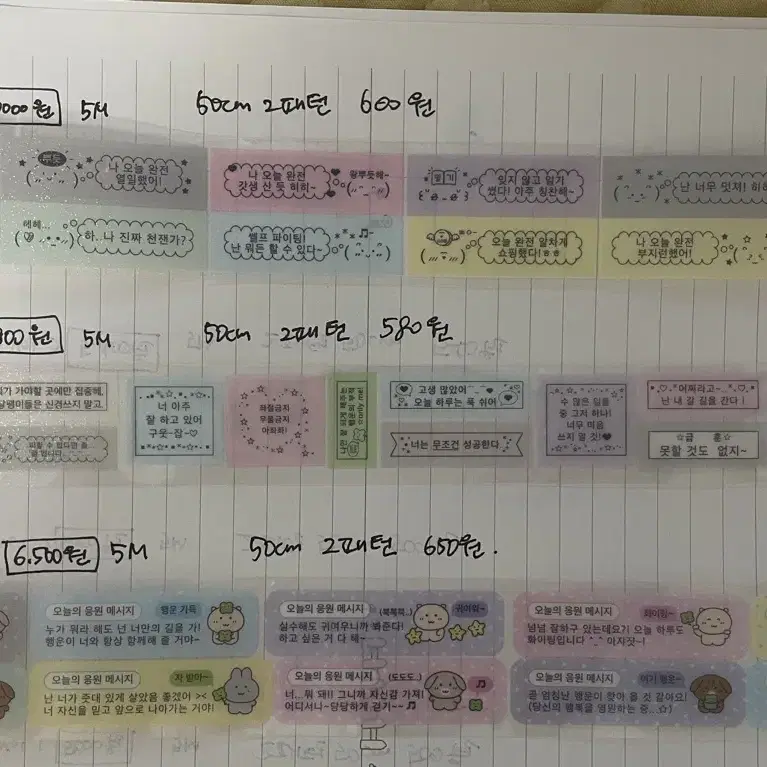 000원 5M 50cm 2패턴 600원
뿌듯
나 오늘 완전
열일했어!
나 오늘 완전
갓생 산 듯 히히~
왕뿌듯해~
일기
잊지 않고 일기
썼다! 아주 칭찬해~
난 너무 멋져! 히히
헤헤...
하..나 진짜 천잰가?
셀프 파이팅!
난 뭐든 할 수 있다~
오늘 완전 알차게
쇼핑했다!ㅎㅎ
나 오늘 완전
부지런했어!
800원 5M 50cm 2패턴 580원
가 가야할 곳에만 집중해,
달팽이들은 신경쓰지 말고.
너 아주
잘 하고 있어
구웃-잡-♡
좌절금지
우울금지
아좌좌!
고생 많았어
오늘 하루는 푹 쉬어
수 많은 일들
중 그저 하나!
너무 마음
쓰지 말 것!♥
~어쩌라고~
난 내 갈 길을 간다!
피할 수 없다면 즐
너는 무조건 성공한다.
☆급 훈☆
못할 것도 없지~
6.500원 5M 50cm 2패턴 650원.
오늘의 응원 메시지 행운 가득
누가 뭐라 해도 넌 너만의 길을 가!
행운이 너와 항상 함께해 줄 거야~
오늘의 응원 메시지 (쭉쭉쭉..) 귀여워~
실수해도 귀여우니까 봐준다!
하고 싶은 거 다 해~
오늘의 응원 메시지 화이팅~
넘넘 잘하구 있는데요?! 오늘 하루도
화이팅입니다 ^_^ 아자잣~!
오늘의 응원 메시지 자 받아~
난 너가 줏대 있게 살았음 좋겠어 ><
너 자신을 믿고 앞으로 나아가는 거야!
오늘의 응원 메시지 (도도도..)
너.. 뭐 돼!! 그니까 자신감 가져!
어디서나~당당하게 걷기~~♬
오늘의 응원 메시지 여기 행운~
곧 엄청난 행운이 찾아 올 것 같아요!
(당신의 행복을 염원하는 중...☆)